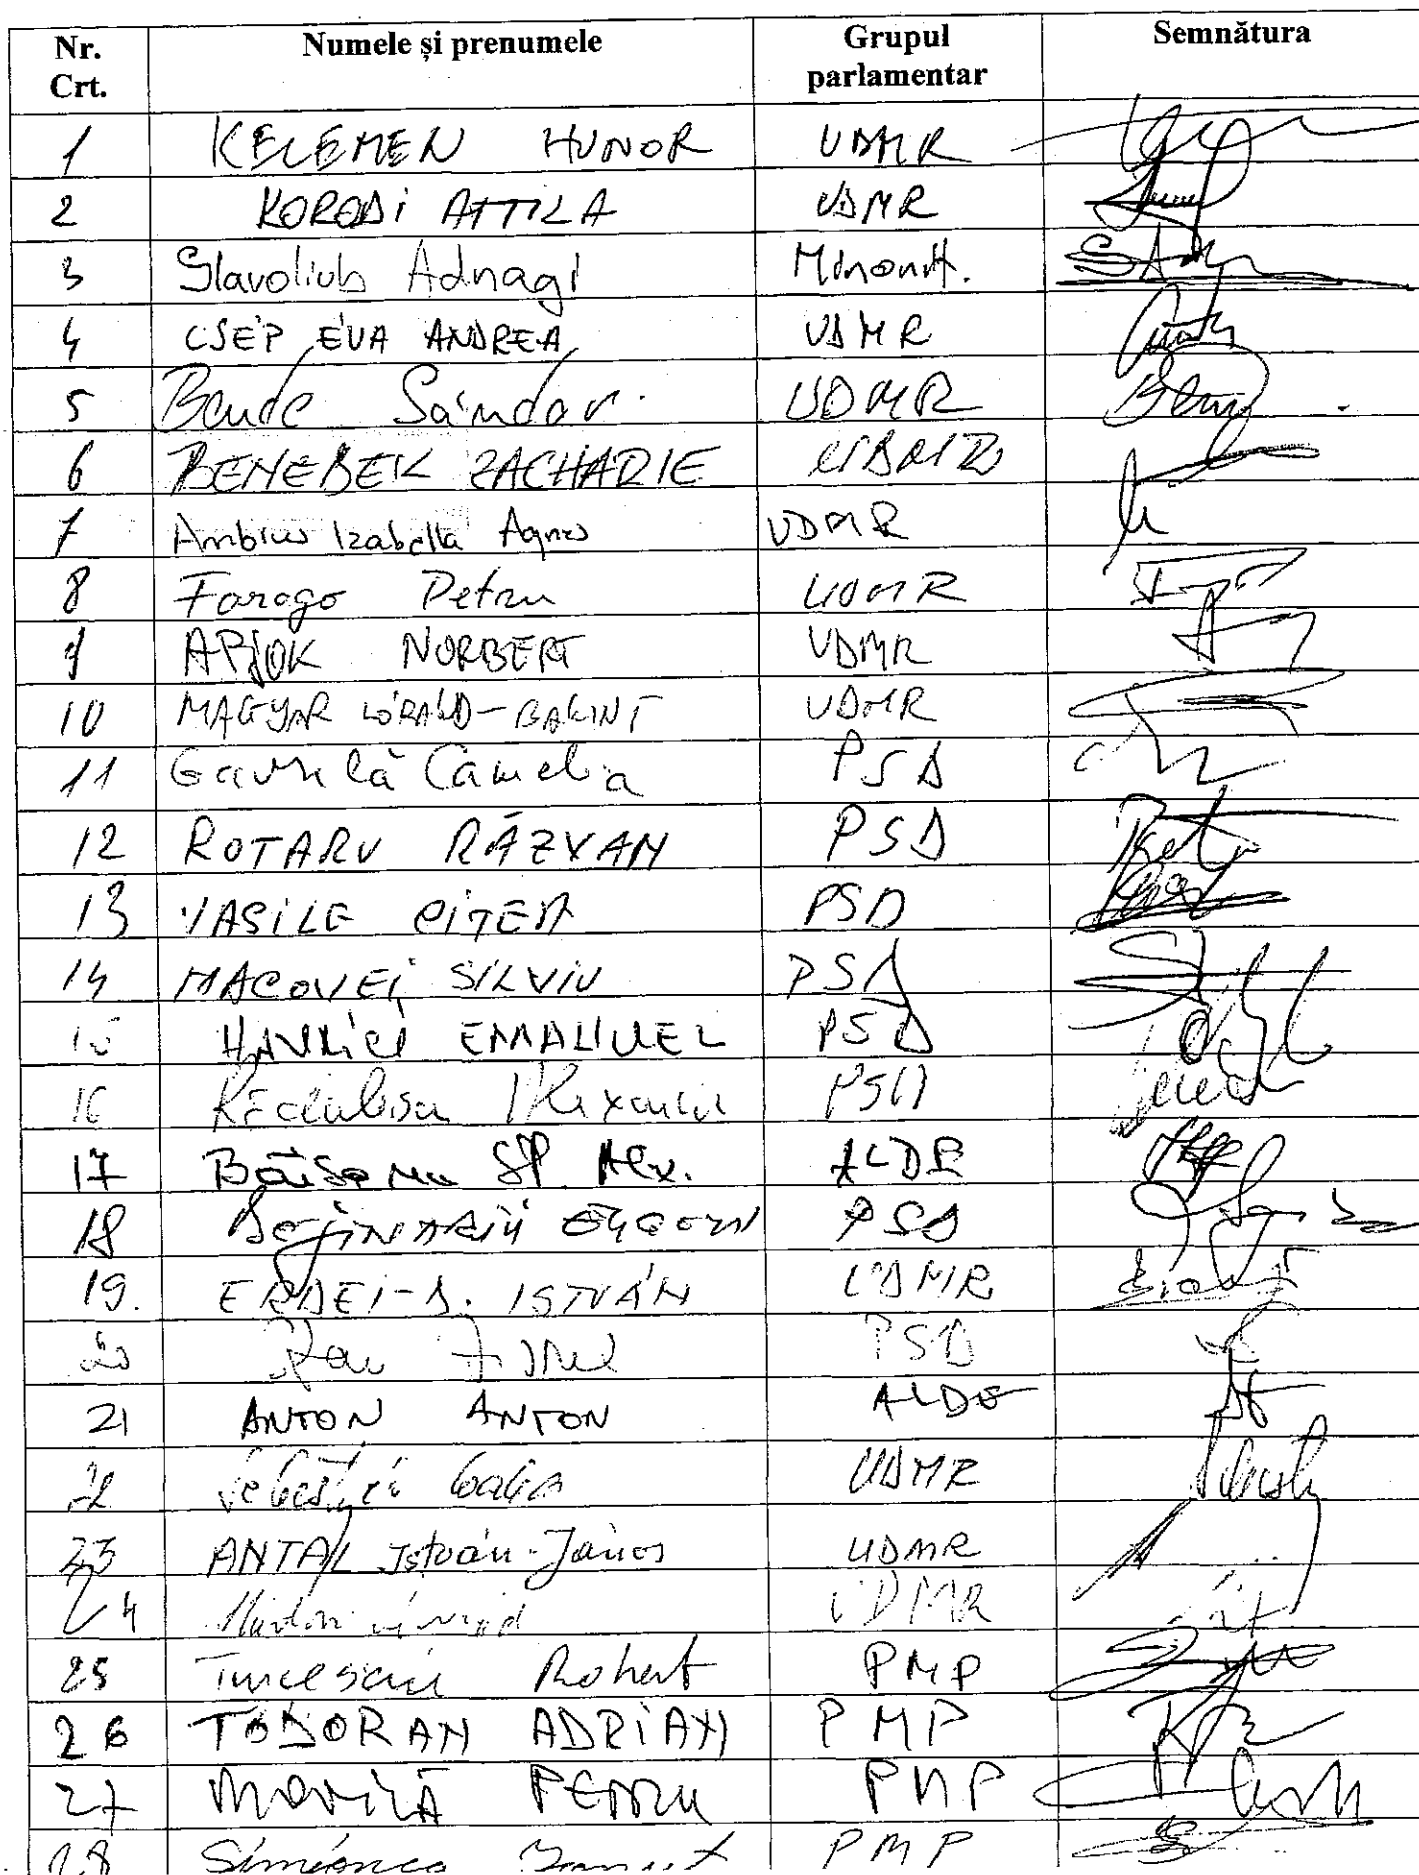 Nr. Crt. Numele și prenumele Grupul parlamentar Semnătura
1 KELEMEN HUNOR UDMR
2 KORODI ATTILA UDMR
3 Slavoliub Adnagi Minorit.
4 CSÉP ÉVA ANDREA UDMR
5 Bende Sándor UDMR
6 BENEBEK ZACHARIE UDMR
7 Ambrus Izabella Agnes UDMR
8 Farago Petru UDMR
9 APJOK NORBERT UDMR
10 MAGYAR LÓRÁND-BÁLINT UDMR
11 Gavrilă Camelia PSD
12 ROTARU RĂZVAN PSD
13 VASILE CÎTEA PSD
14 MACOVEI SILVIU PSD
15 HAVRICI EMANUEL PSD
16 PSD
17 Băișanu Șt. Alex. ALDE
18 PSD
19. ERDEI-D. ISTVÁN UDMR
20 Stan Ionel PSD
21 ANTON ANTON ALDE
22 UDMR
23 ANTAL István-János UDMR
24 UDMR
25 Turcescu Robert PMP
26 TODORAN ADRIAN PMP
27 MOVILĂ PETRU PMP
28 Simionca PMP